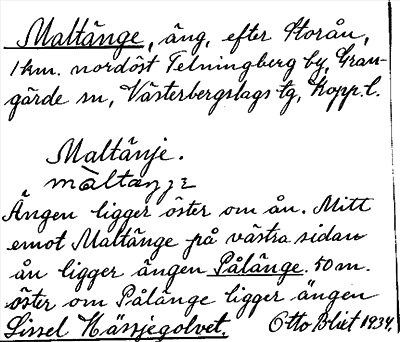 Maltänge, äng, efter Storån,
1 km. nordöst Telningberg by, Gran-
gärde sn, Västerbergslags tg, Kopp. l.
Maltänje.
màltæŋʒɛ
Ängen ligger öster om ån. Mitt
emot Maltänge på västra sidan
ån ligger ängen Pålänge. 50 m.
öster om Pålänge ligger ängen
Sissel Hässjegolvet. Otto Blixt 1934.